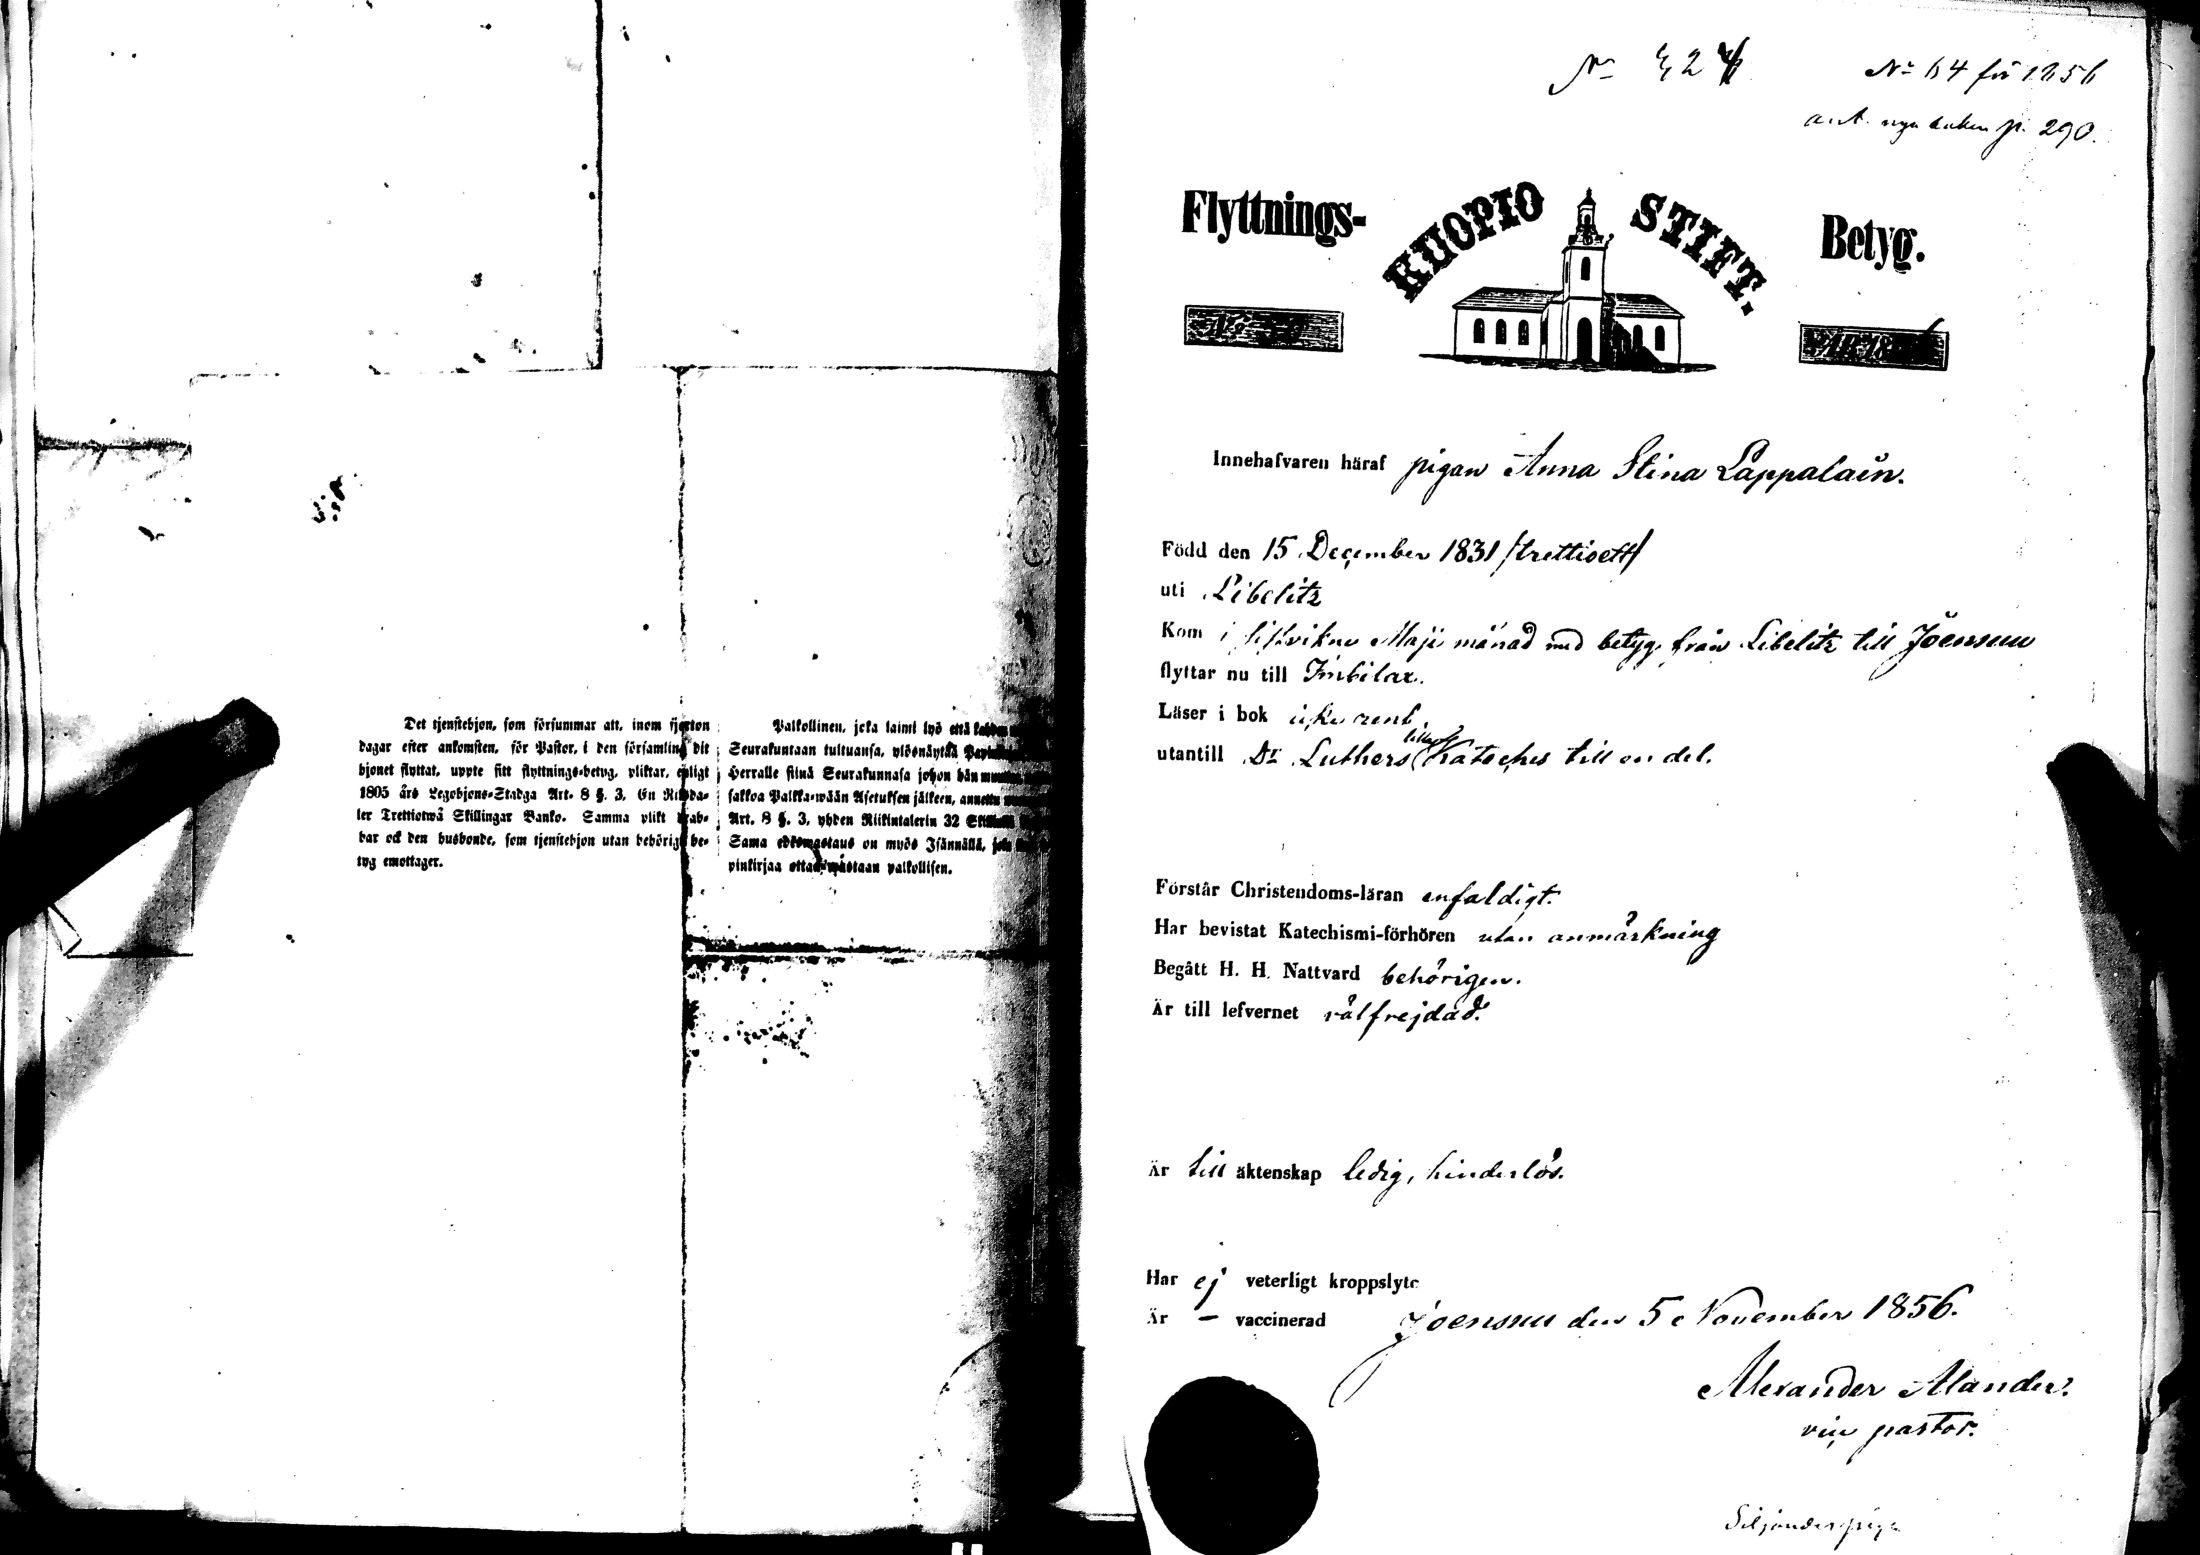 Det tjenstehjon, som försummar att, inom fjorton
dagar efter ankomsten, för Pastor, i den församling dit
hjonet flyttat, uppte sitt flyttnings-betyg, pliktar, enligt
1805 års Legohjons-Stadga Art. 8 §. 3, En Riksda-
ler Trettiotwå Skillingar Banko. Samma plikt drab-
bar ock den husbonde, som tjenstehjon utan behörigt be-
tyg emottager.
Palkollinen, joka laimi lyö että kahden
Seurakuntaan tultuansa, ylösnäyttää
Herralle siinä Seurakunnasa johon hän
sakkoa Palkka-wään Asetuksen jälkeen, annettu
Art. 8 §. 3, yhden Riikintalerin 32
Sama edeswastaus on myös Isännällä,
pinkirjaa ottaa wastaan palkollisen.
No 64 för 1856
ant. nya boken p. 290.
Flyttnings- KUOPIO STIFT. Betyg.
Innehafvaren häraf pigan Anna Stina Lappalain.
Född den 15 December 1831 /trettioett/
uti Libelitz
Kom i Maji månad med betyg från Libelitz till Joensuu
flyttar nu till Imbilax.
Läser i bok rent
utantill Dr Luthers Kateches till en del.
Förstår Christendoms-läran enfaldigt.
Har bevistat Katechismi-förhören utan anmärkning
Begått H. H. Nattvard behörigen.
Är till lefvernet välfrejdad.
Är till äktenskap ledig, hinderlös.
Har ej veterligt kroppslyte
Är – vaccinerad
Joensuu den 5 November 1856.
Alexander Alander.
vice pastor.